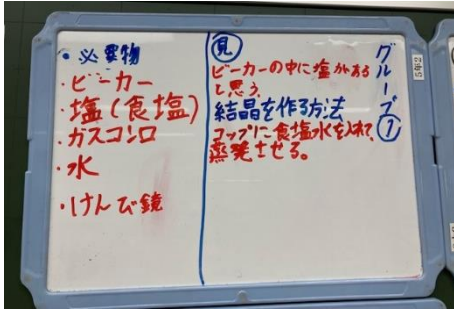 ・必要物
・ビーカー
・塩(食塩)
・ガスコンロ
・水
・けんび鏡
グループ①
見
ビーカーの中に塩がある
と思う
結晶を作る方法
コップに食塩水を入れて、
蒸発させる。